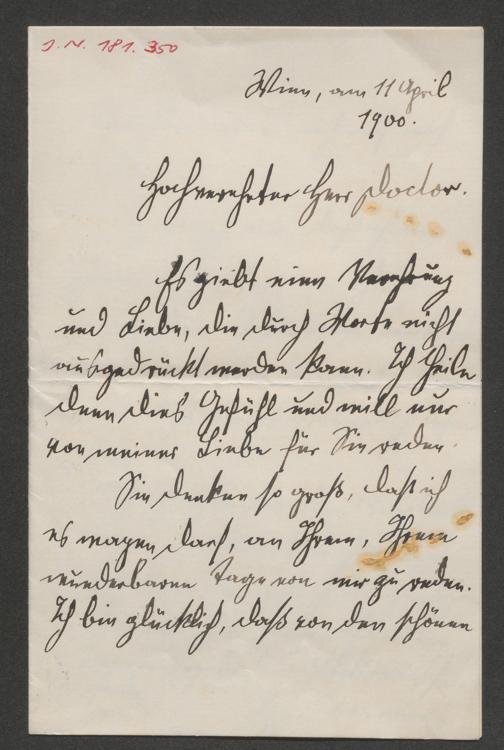 J. N. 181.350
Wien, am 11 April
1900.
Hochverehrter Herr Doctor.
Es giebt eine Verehrung
und Liebe, die durch Worte nicht
ausgedrückt werden kann. Ich theile
denn dies Gefühl und will nur
von meiner Liebe für Sie reden.
Sie denken so groß, daß ich
es wagen darf, an Ihrem, Ihrem
wunderbaren Tage von mir zu reden.
Ich bin glücklich, daß von den schönen